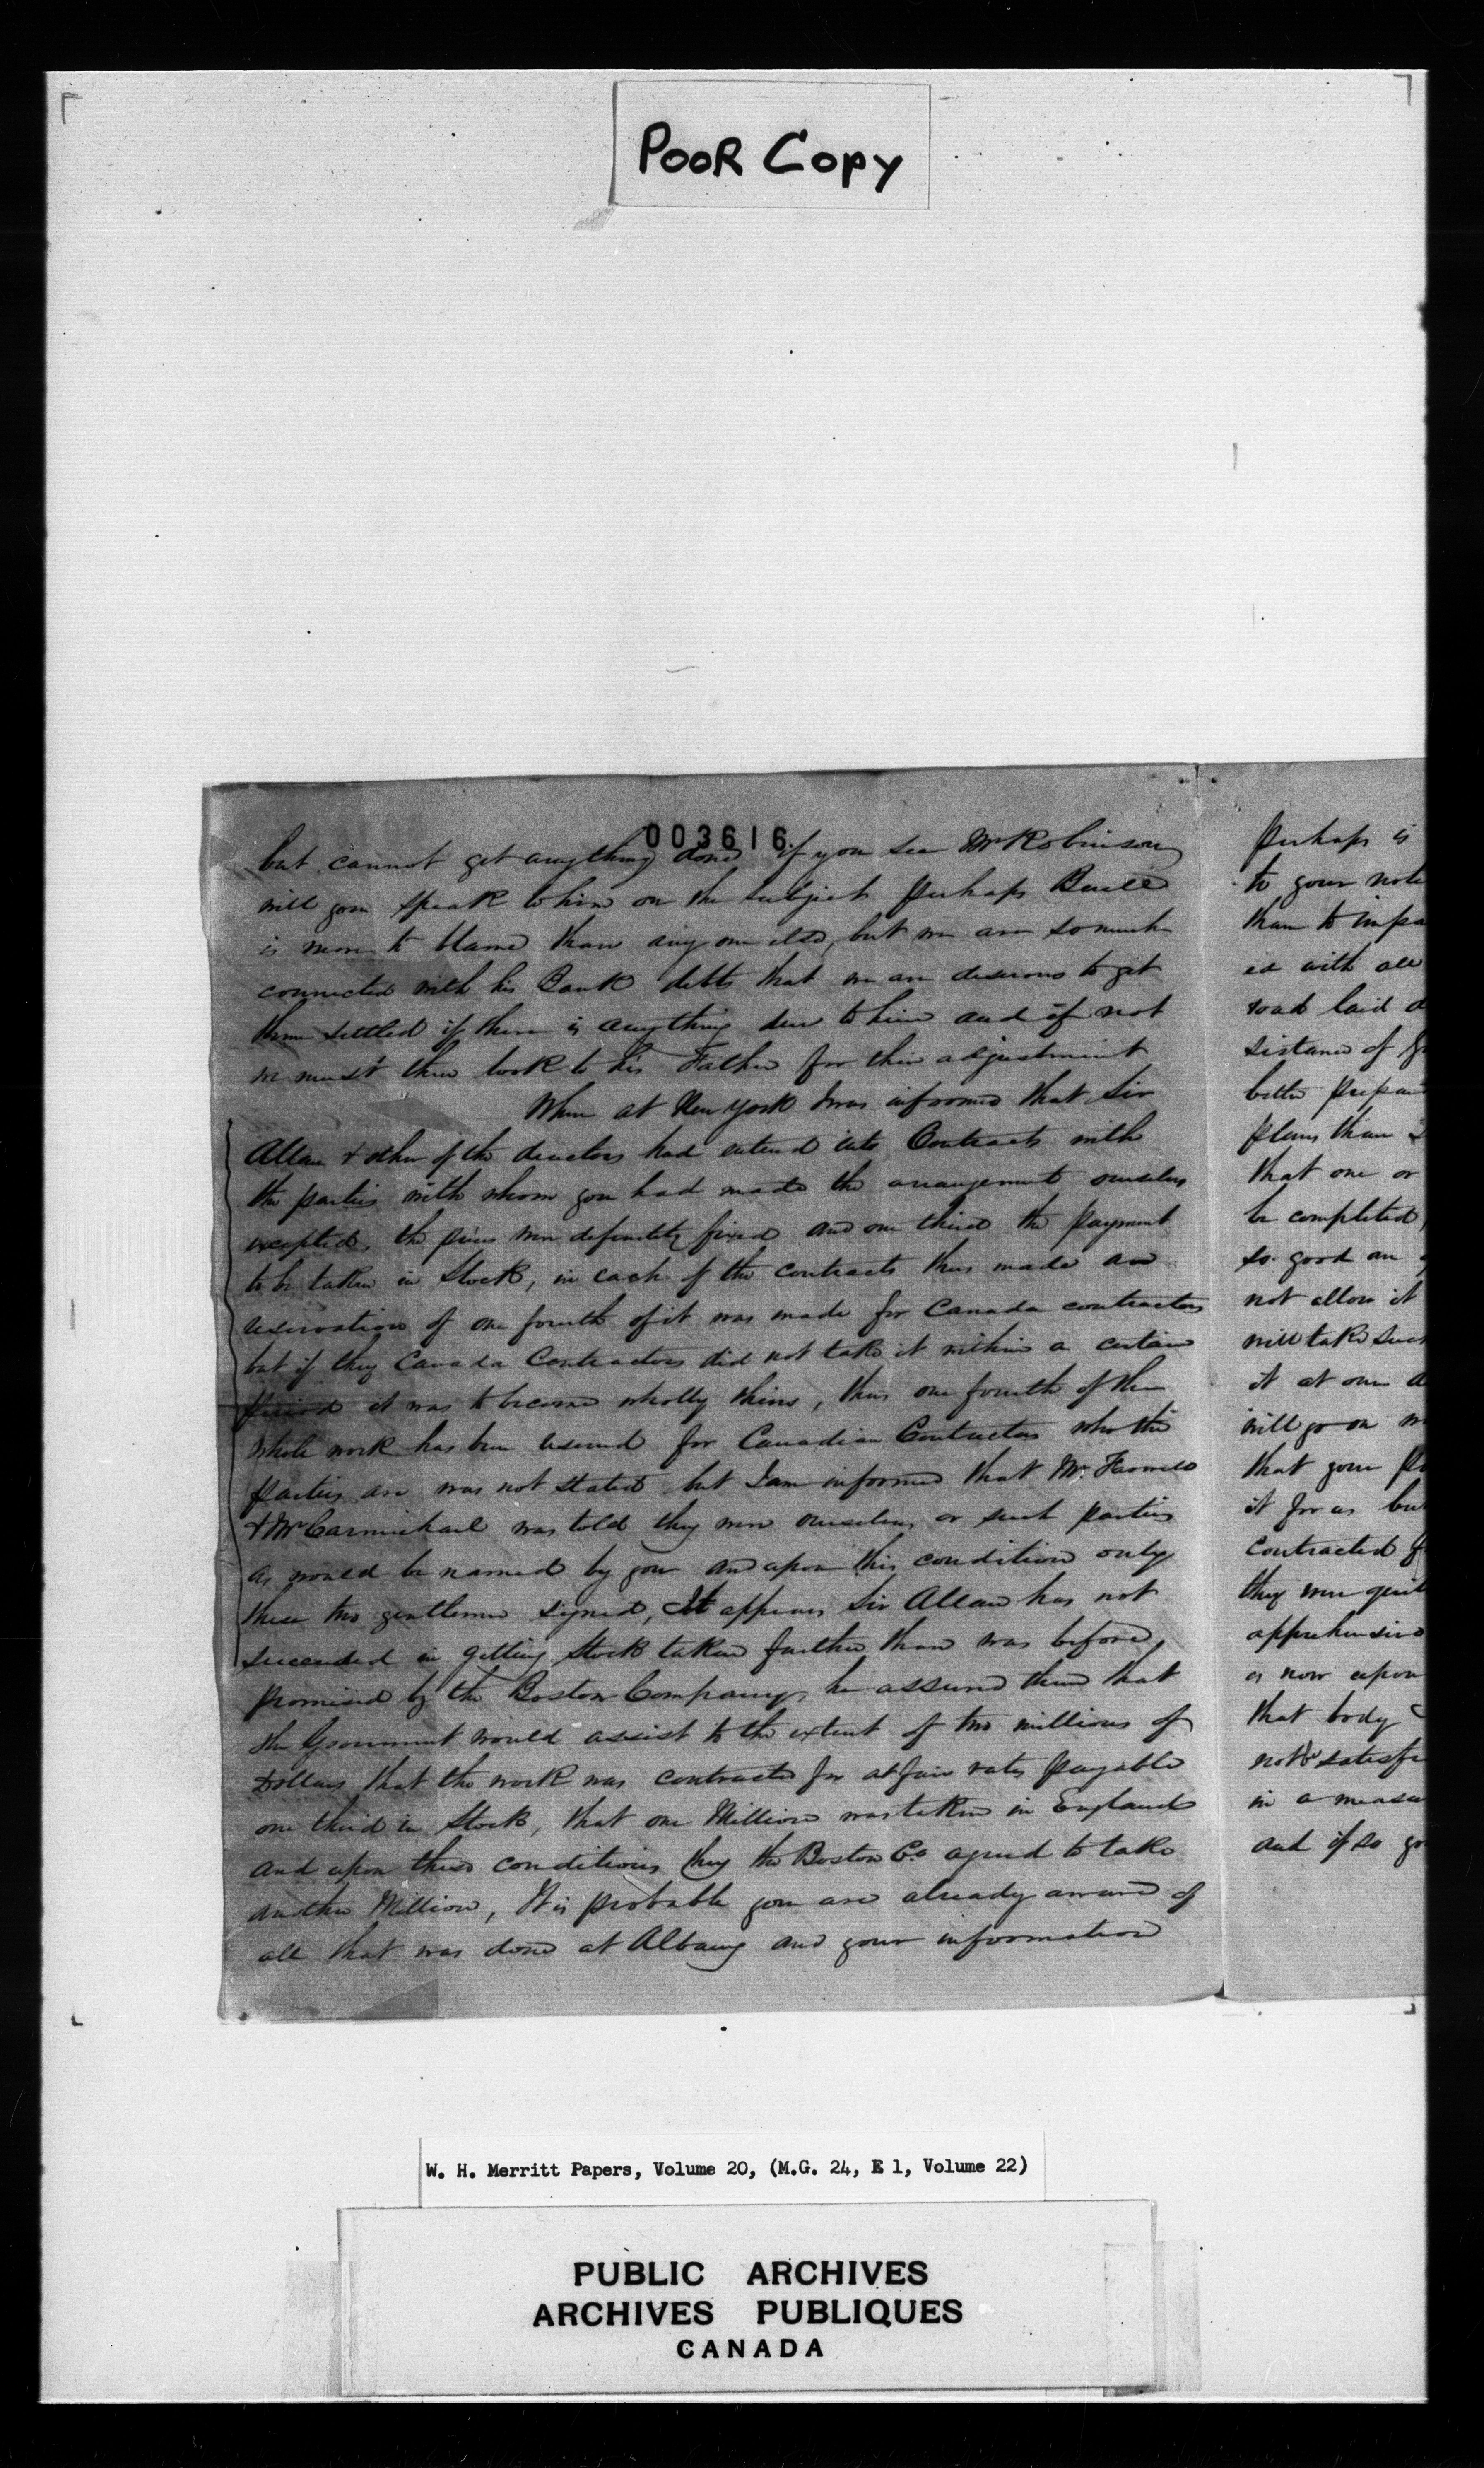 POOR COPY
003616
but cannot get anything done if you see Mr Robinson
will you speak to him on the subject perhaps
is more to blame than any one else, but we are so much
connected with his Bank debts that we are desirous to get
them settled if there is anything due to him and if not
we must then look to his Father for their adjustment
When at New York I was informed that Sir
Allan & other of the directors had entered into Contracts with
the parties with whom you had made the arrangement ourselves
excepted, the prices were definitely fixed and one third the payment
to be taken in Stock, in each of the contracts thus made an
reservation of one fourth of it was made for Canada contractors
but if they Canada Contractors did not take it within a certain
period it was to become wholly theirs, thus one fourth of the
whole work has been reserved for Canadian Contractors who the
parties are was not stated but I am informed that Mr.
& Mr Carmichael was told they were ourselves or such parties
as would be named by you and upon this condition only
these two gentlemen signed, It appears Sir Allan has not
succeeded in getting Stock taken further than was before
promised by the Boston Company, he assured them that
the Government would assist to the extent of two millions of
Dollars that the work was contracted for at fair rates payable
one third in Stock, that one Million was taken in England
and upon these conditions they the Boston Co. agreed to take
another Million, It is probable you are already aware of
all that was done at Albany and your information
perhaps is
to your note
than to impa
ed with all
road laid d
sistance of
better prepar
plans than
that one or
be completed
so good an
not allow it
will take such
it at our
will go on
that your
it for as but
contracted f
they were quit
apprehensive
is now upon
that body
not be satisfi
in a measu
and if so yo
W. H. Merritt Papers, Volume 20, (M.G. 24, E 1, Volume 22)
PUBLIC ARCHIVES
ARCHIVES PUBLIQUES
CANADA